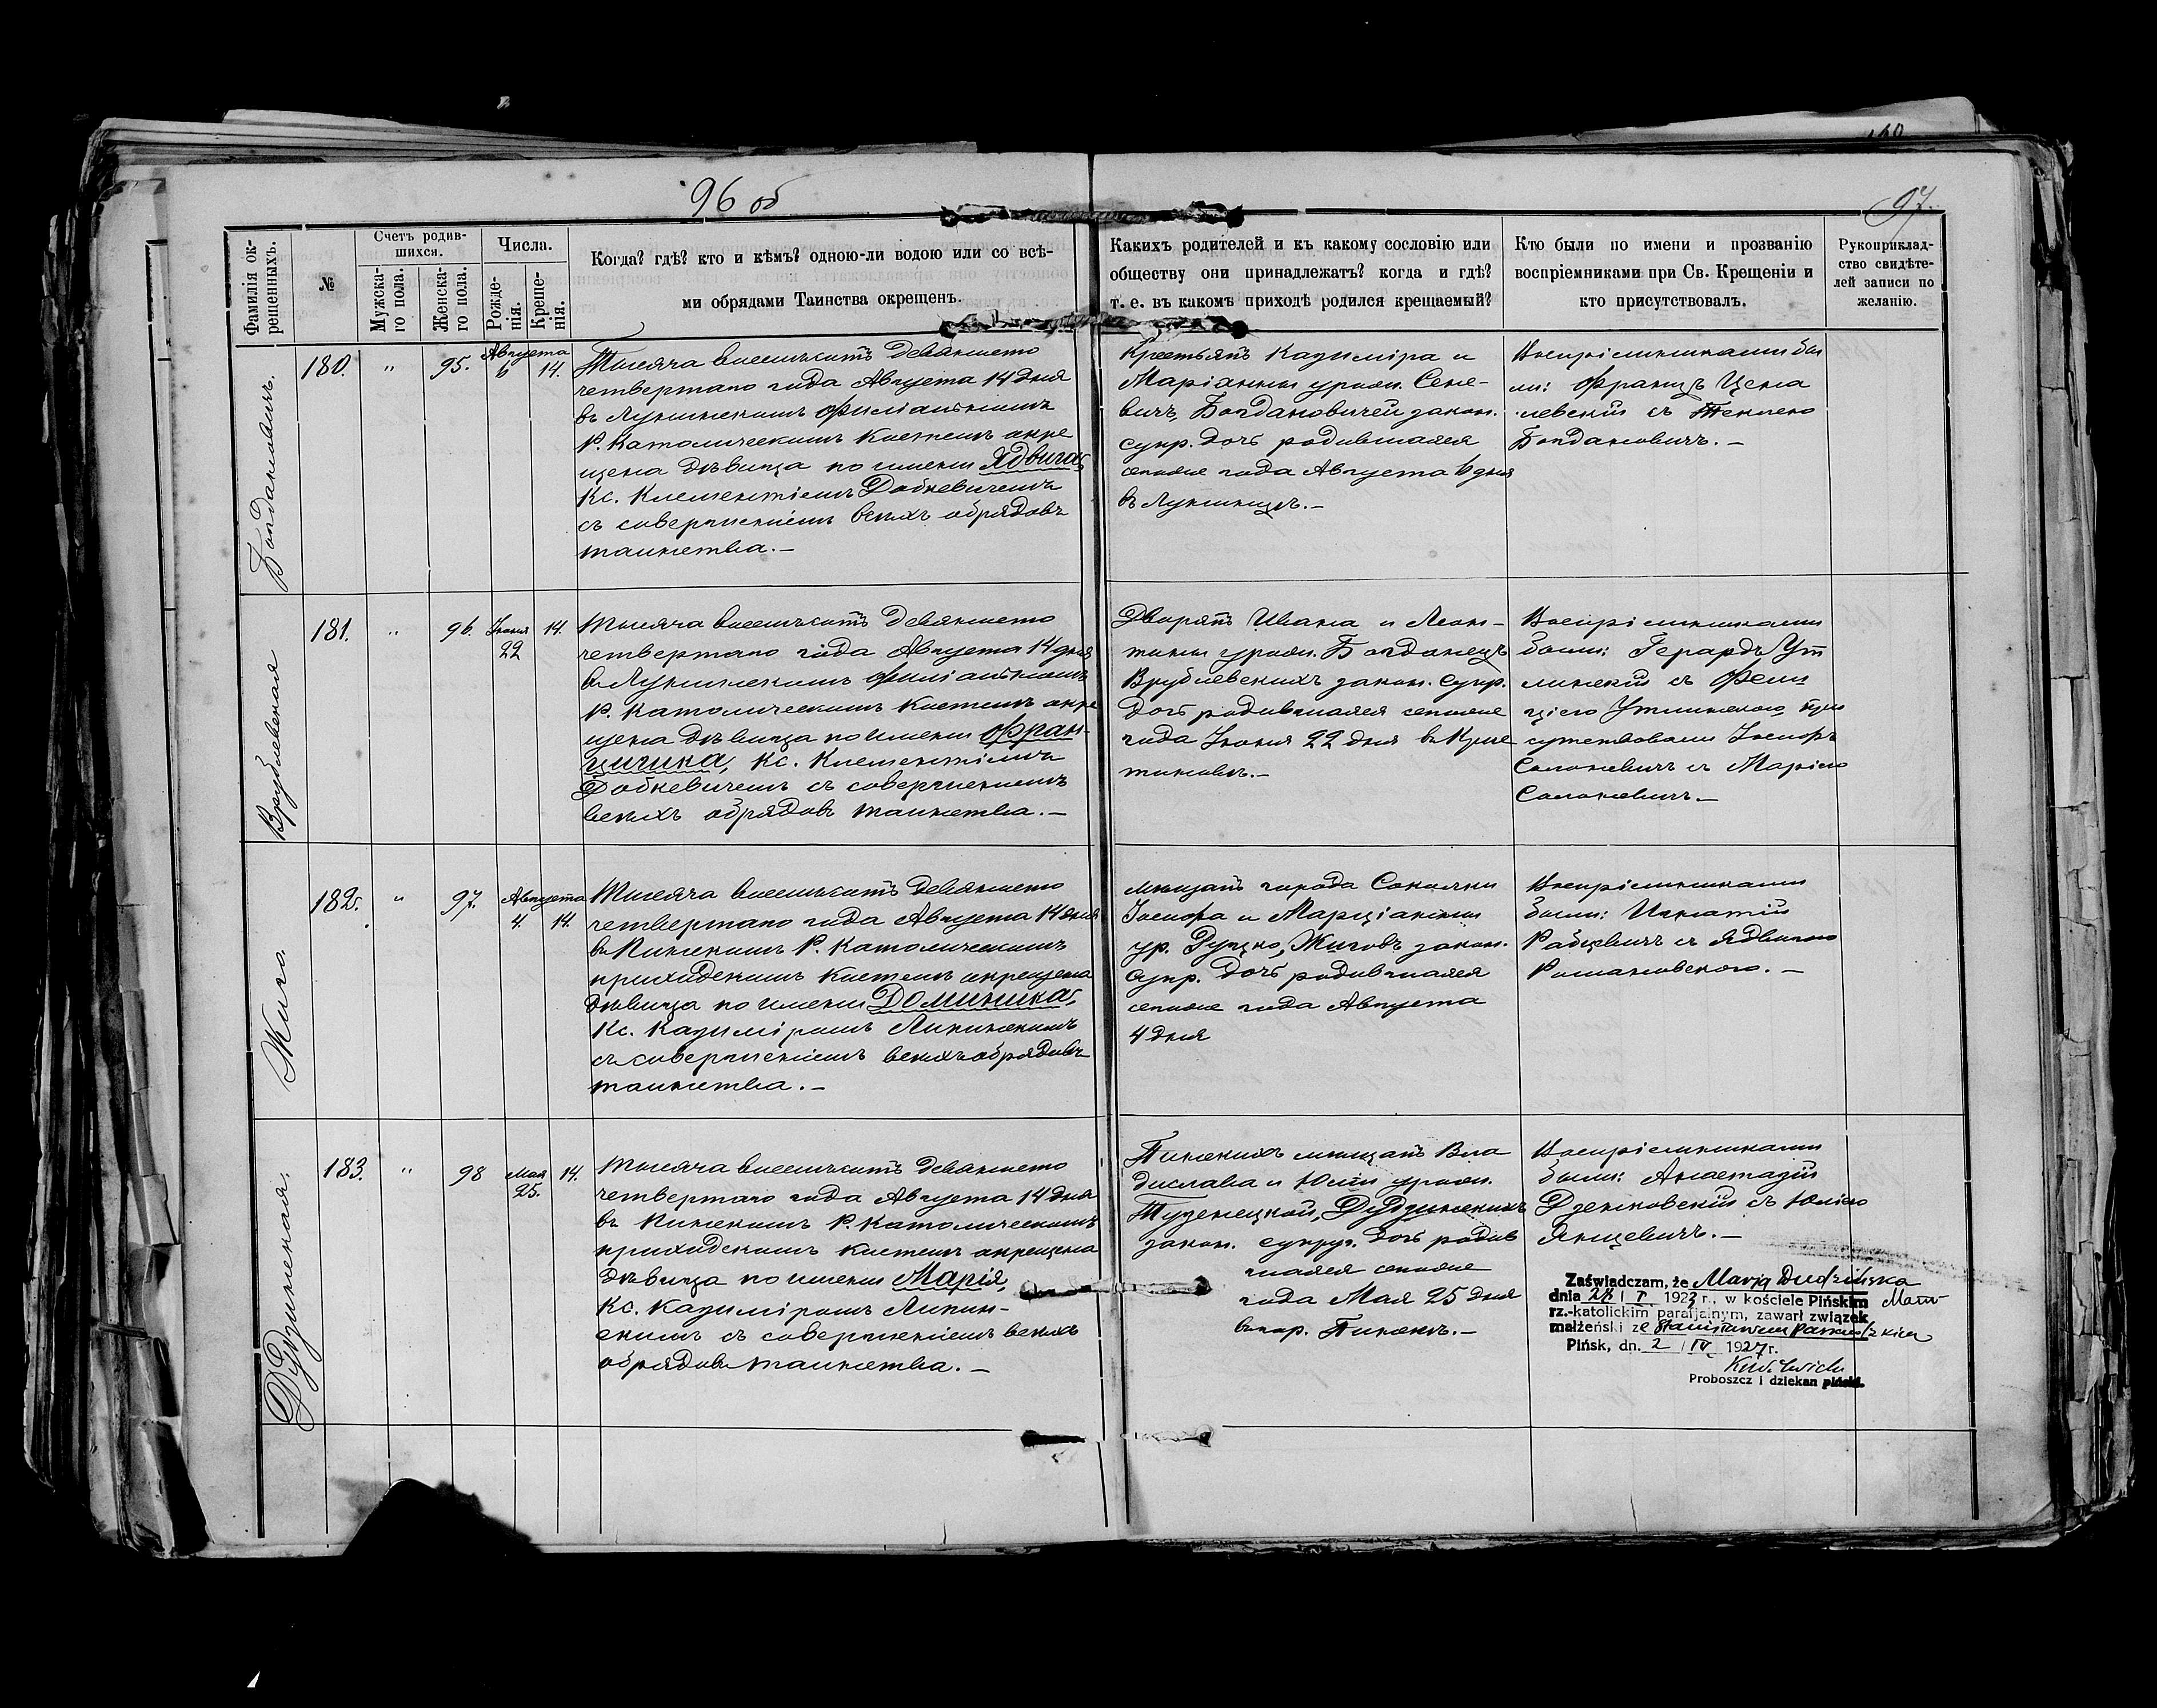 96 об
97.
Фамилія ок-
рещенныхъ.
№
Счетъ родив-
шихся.
Мужска-
го пола.
Женска-
го пола.
Числа.
Рожде-
нія.
Креще-
нія.
Когда? гдѣ? кто и кѣмъ? одною-ли водою или со всѣ-
ми обрядами Таинства окрещенъ.
Какихъ родителей и къ какому сословію или
обществу они принадлежатъ? когда и гдѣ?
т. е. въ какомъ приходѣ родился крещаемый?
Кто были по имени и прозванію
воспріемниками при Св. Крещеніи и
кто присутствовалъ.
Рукоприклад-
ство свидѣте-
лей записи по
желанію.
Богдановичъ.
180.
"
95.
Августа
6 14.
Тысяча восемьсотъ девяносто
четвертаго года Августа 14 дня
въ Лунинскомъ филіальномъ
Р. Католическомъ костелѣ окре
щена дѣвица по имени Ядвига,
Кс. Клементіемъ Добкевичемъ
съ совершеніемъ всѣхъ обрядовъ
таинства.—
Крестьянъ Казиміра и
Маріанны урожд. Сене-
вичъ, Богдановичей закон.
супр. дочь родившаяся
сегоже года Августа 6 дня
въ Лунинцѣ.—
Воспріемниками бы
ли: Францъ
съ Теклею
Богдановичъ.—
Врублевская
181.
"
96.
Іюня
22
14.
Тысяча восемьсотъ девяносто
четвертаго года Августа 14 дня
въ Лунинскомъ филіальномъ
Р. Католическомъ костелѣ окре
щена дѣвица по имени Фран-
цишка, Кс. Клементіемъ
Добкевичемъ съ совершеніемъ
всѣхъ обрядовъ таинства.—
Дворянъ Ивана и Леон-
тины урожд. Богданецъ
Врублевскихъ закон. супр.
дочь родившаяся сегоже
года Іюня 22 дня въ
Воспріемниками
были: Герардъ
съ Фели
ціею при
сутствовали Іосифъ
Солоневичъ съ Маріею
Солоневичъ.—
Жиго
182.
"
97.
Августа
4. 14.
Тысяча восемьсотъ девяносто
четвертаго года Августа 14 дня
въ Пинскомъ Р. Католическомъ
приходскомъ костелѣ окрещена
дѣвица по имени Доминика,
Кс. Казиміромъ Липинскимъ
съ совершеніемъ всѣхъ обрядовъ
таинства.—
Мѣщанъ города Соколки
Іосифа и Марціанны
ур. Жиговъ закон.
супр. дочь родившаяся
сегоже года Августа
4 дня
Воспріемниками
были: Игнатій
Рабцевичъ съ Ядвигою
Романовскою.—
Дудзинская.
183.
"
98
Мая
25.
14.
Тысяча восемьсотъ девяносто
четвертаго года Августа 14 дня
въ Пинскомъ Р. Католическомъ
приходскомъ костелѣ окрещена
дѣвица по имени Марія,
Кс. Казиміромъ Липин-
скимъ съ совершеніемъ всѣхъ
обрядовъ таинства.—
Пинскихъ мѣщанъ Вла
дислава и Юліи урожд.
Дудзинскихъ
закон. супруг. дочь родив
шаяся сегоже
года Мая 25 дня
въ гор. Пинскѣ.—
Воспріемниками
были: Анастазій
Дзенковскій съ Юліею
Янцевичъ.—
Zaświadczam, że Marja Dudzińska
dnia 28 I 1923 r., w kościele Pińskim
rz.-katolickim parafjalnym, zawarł związek
małżeński ze Stanisławem
Pińsk, dn. 2 IV 1927 r.
Proboszcz i dziekan piński.